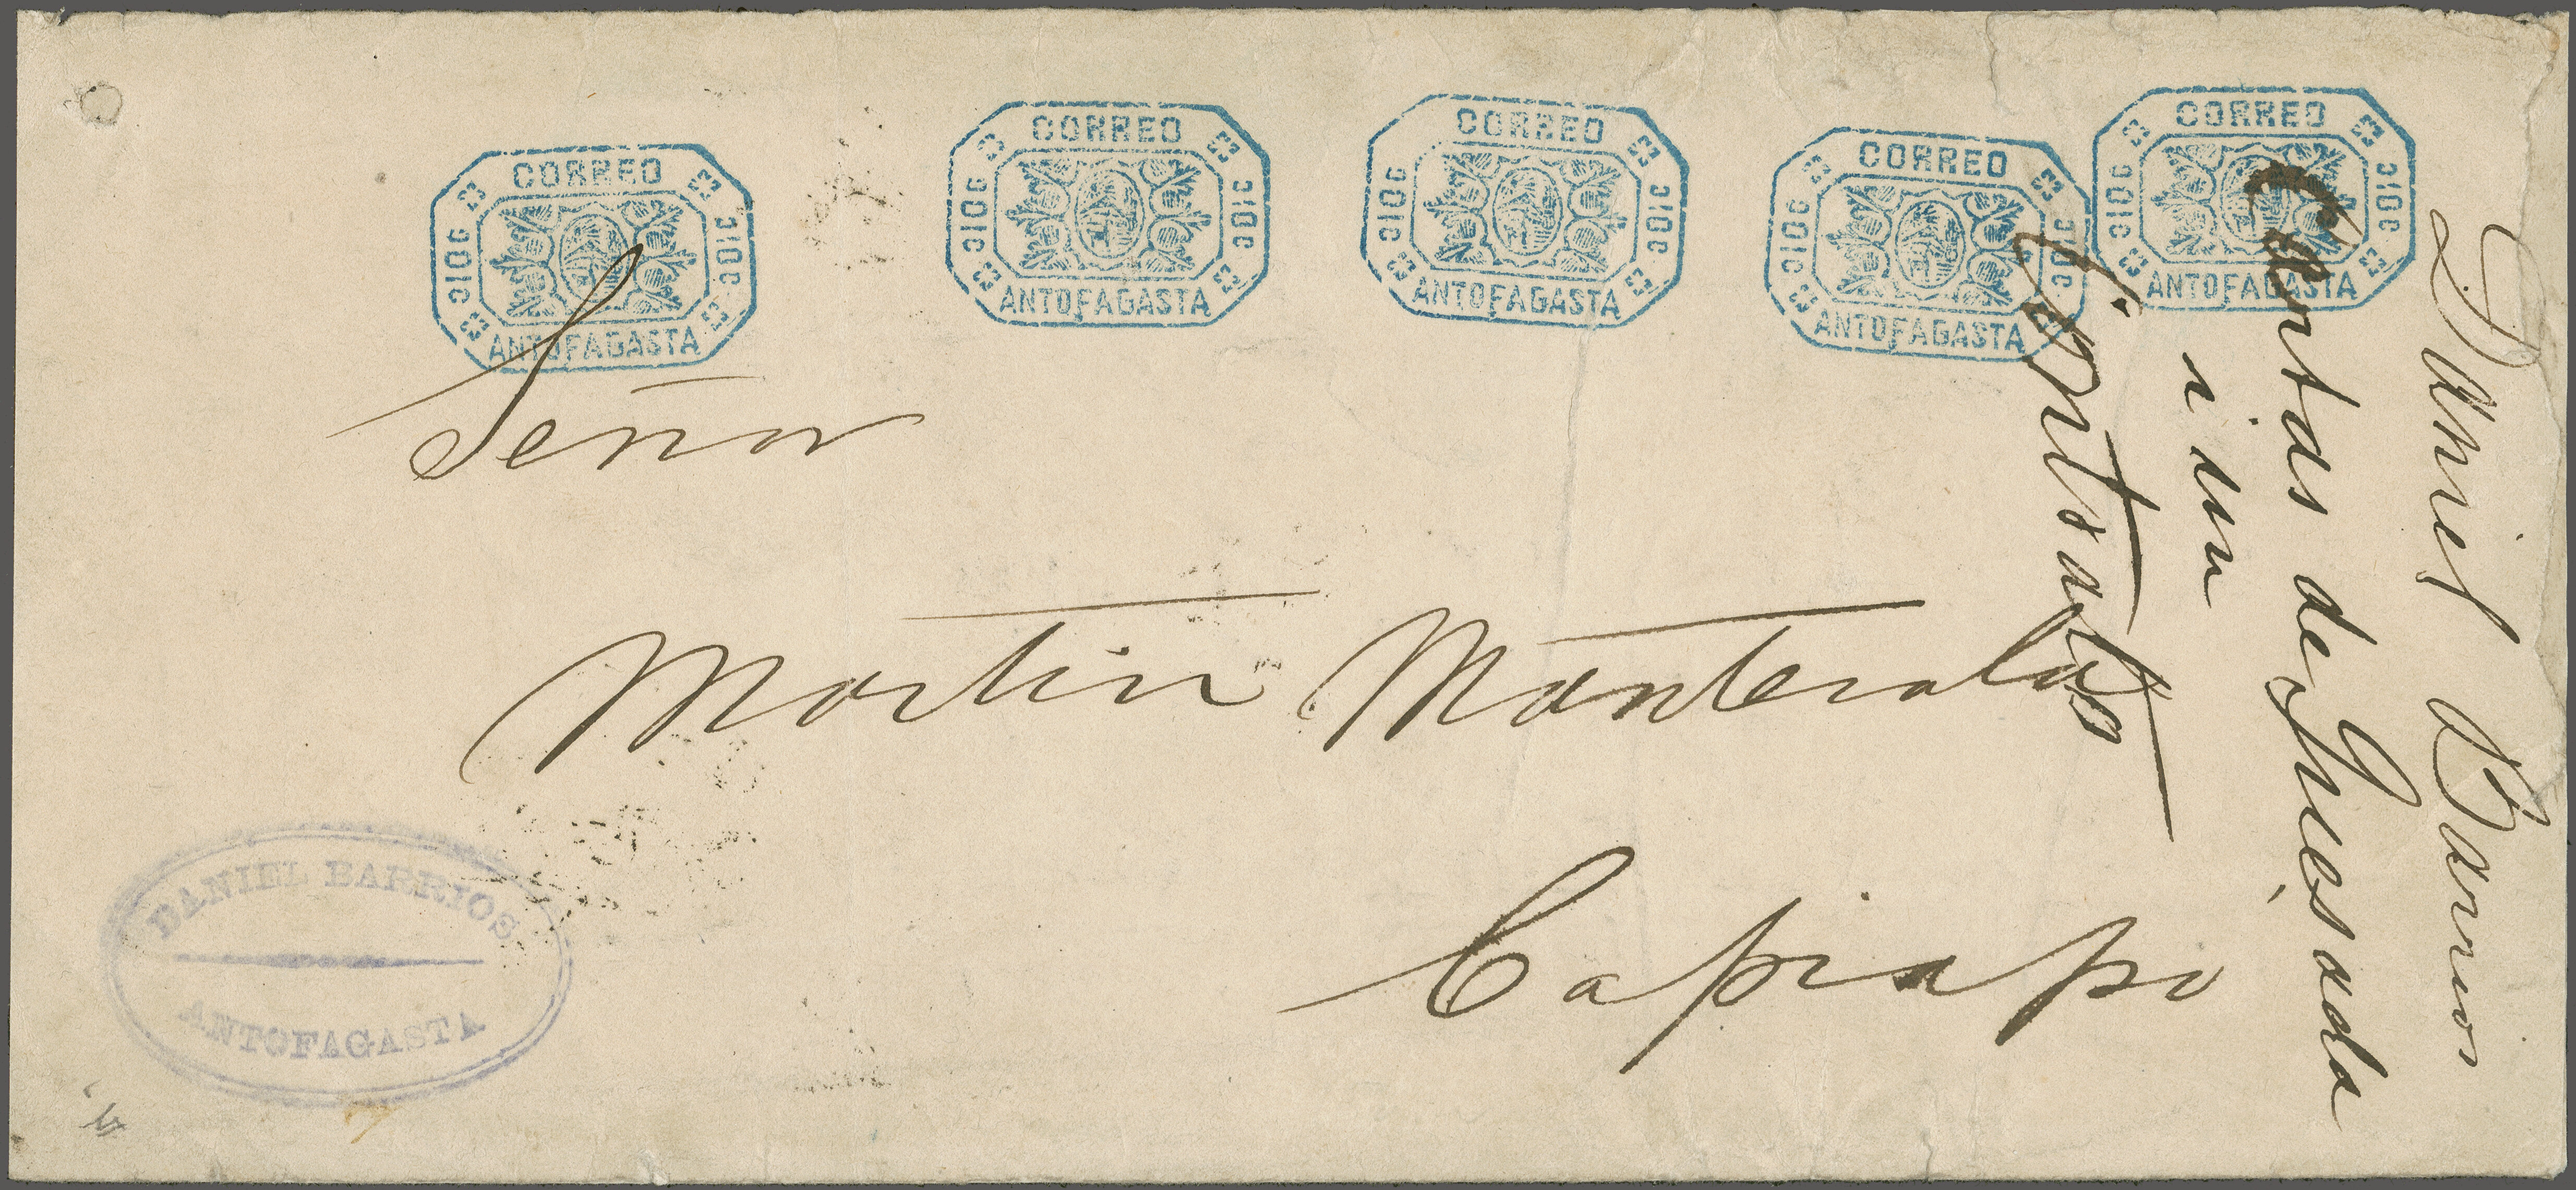 CORREO
C10C
C10C
ANTOFAGASTA
CORREO
C10C
C10C
ANTOFAGASTA
CORREO
C10C
C10C
ANTOFAGASTA
CORREO
C10C
C10C
ANTOFAGASTA
CORREO
C10C
C10C
ANTOFAGASTA
Señor
Martin Manterola
Copiapo
Daniel Barrios
Cartas de Quesada
i un
DANIEL BARRIOS
ANTOFAGASTA